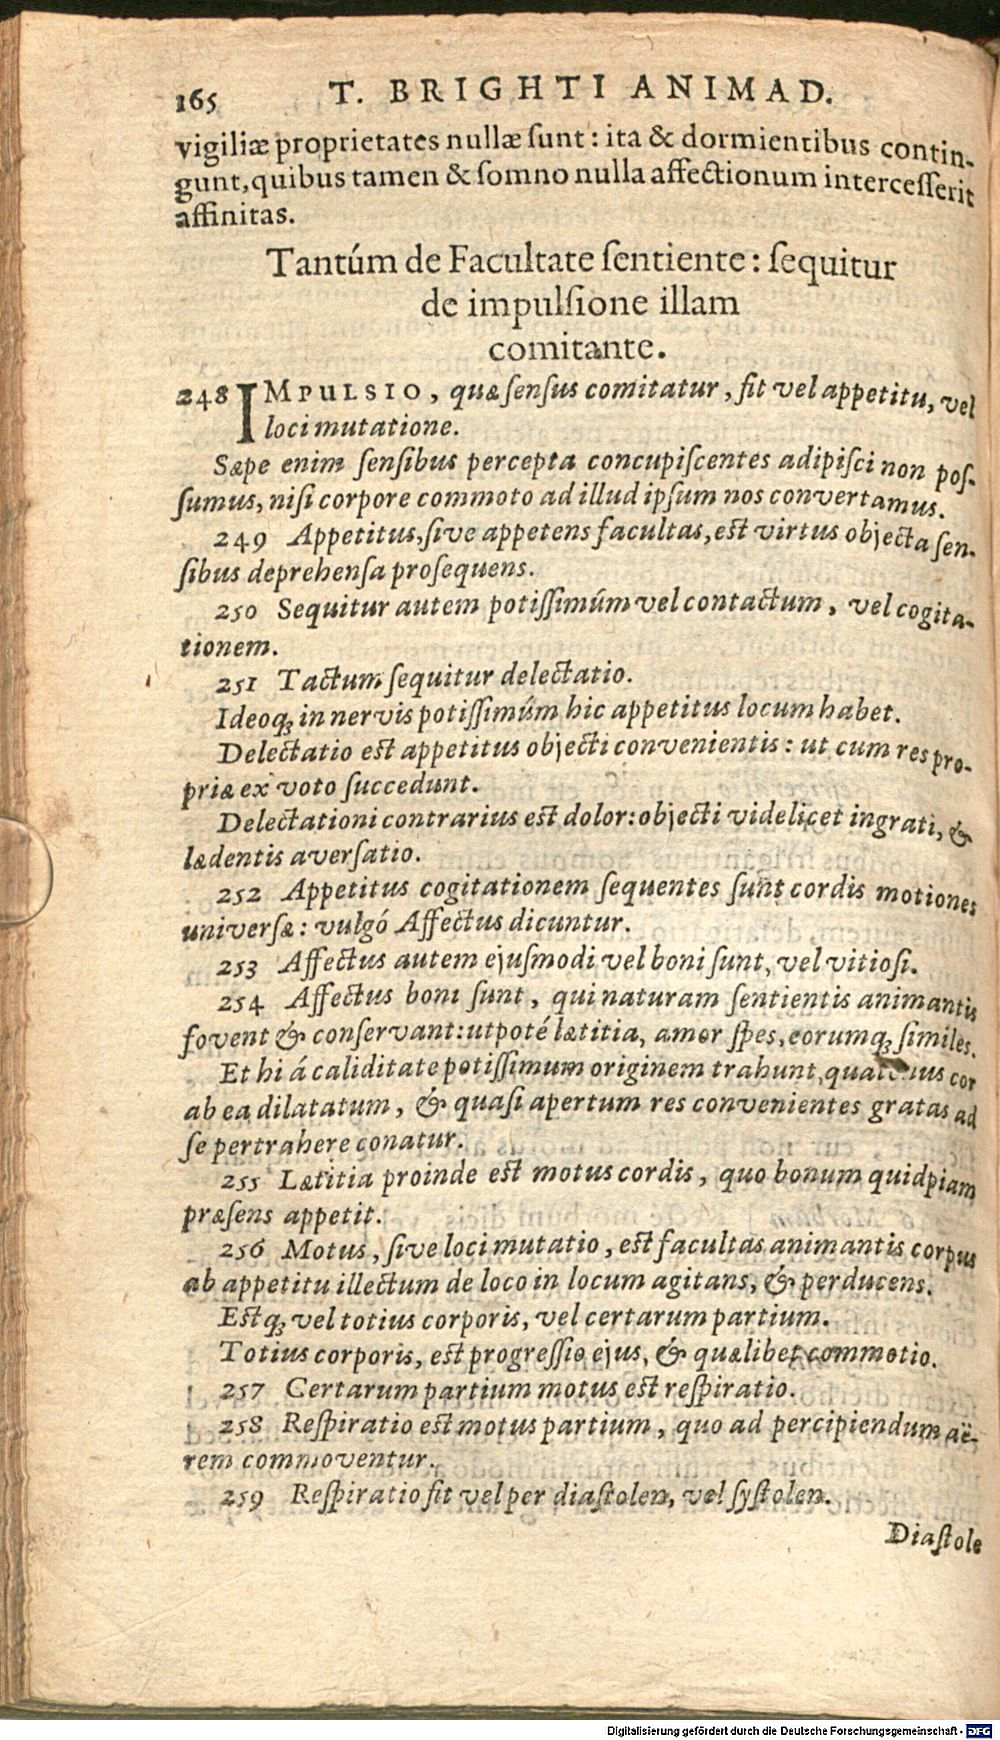 165 T. BRIGHTI ANIMAD.
vigiliæ proprietates nullæ ſunt: ita & dormientibus contin-
gunt, quibus tamen & ſomno nulla affectionum interceſſerit
affinitas.
Tantúm de Facultate ſentiente: ſequitur
de impulſione illam
comitante.
248 IMPULSIO, quæ ſenſus comitatur, fit vel appetitu, vel
loci mutatione.
Sæpe enim ſenſibus percepta concupiſcentes adipiſci non poſ-
ſumus, niſi corpore commoto ad illud ipſum nos convertamus.
249 Appetitus, ſive appetens facultas, eſt virtus objecta ſen-
ſibus deprehenſa proſequens.
250 Sequitur autem potiſſimúm vel contactum, vel cogita-
tionem.
251 Tactum ſequitur delectatio.
Ideoq́; in nervis potiſſimúm hic appetitus locum habet.
Delectatio eſt appetitus objecti convenientis: ut cum res pro-
priæ ex voto ſuccedunt.
Delectationi contrarius eſt dolor: objecti videlicet ingrati, &
lædentis averſatio.
252 Appetitus cogitationem ſequentes ſunt cordis motiones
univerſæ: vulgó Affectus dicuntur.
253 Affectus autem ejuſmodi vel boni ſunt, vel vitioſi.
254 Affectus boni ſunt, qui naturam ſentientis animantis
fovent & conſervant: utpoté lætitia, amor ſpes, eorumq́; ſimiles.
Et hi á caliditate potiſſimum originem trahunt, quatenus cor
ab ea dilatatum, & quaſi apertum res convenientes gratas ad
ſe pertrahere conatur.
255 Lætitia proinde eſt motus cordis, quo bonum quidpiam
præſens appetit.
256 Motus, ſive loci mutatio, eſt facultas animantis corpus
ab appetitu illectum de loco in locum agitans, & perducens.
Eſtq́; vel totius corporis, vel certarum partium.
Totius corporis, eſt progreſſio ejus, & quælibet commotio.
257 Certarum partium motus eſt reſpiratio.
258 Reſpiratio eſt motus partium, quo ad percipiendum aë-
rem commoventur.
259 Reſpiratio fit vel per diaſtolen, vel ſyſtolen.
Diaſtole
Digitalisierung gefördert durch die Deutsche Forschungsgemeinschaft - DFG